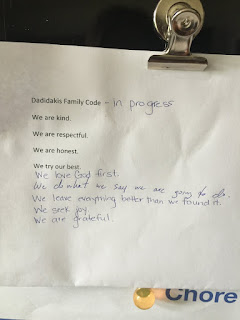 Dadidakis Family Code - in progress
We are kind.
We are respectful.
We are honest.
We try our best.
We love God first.
We do what we say we are going to do.
We leave everything better than we found it.
We seek joy.
We are grateful.
Chore